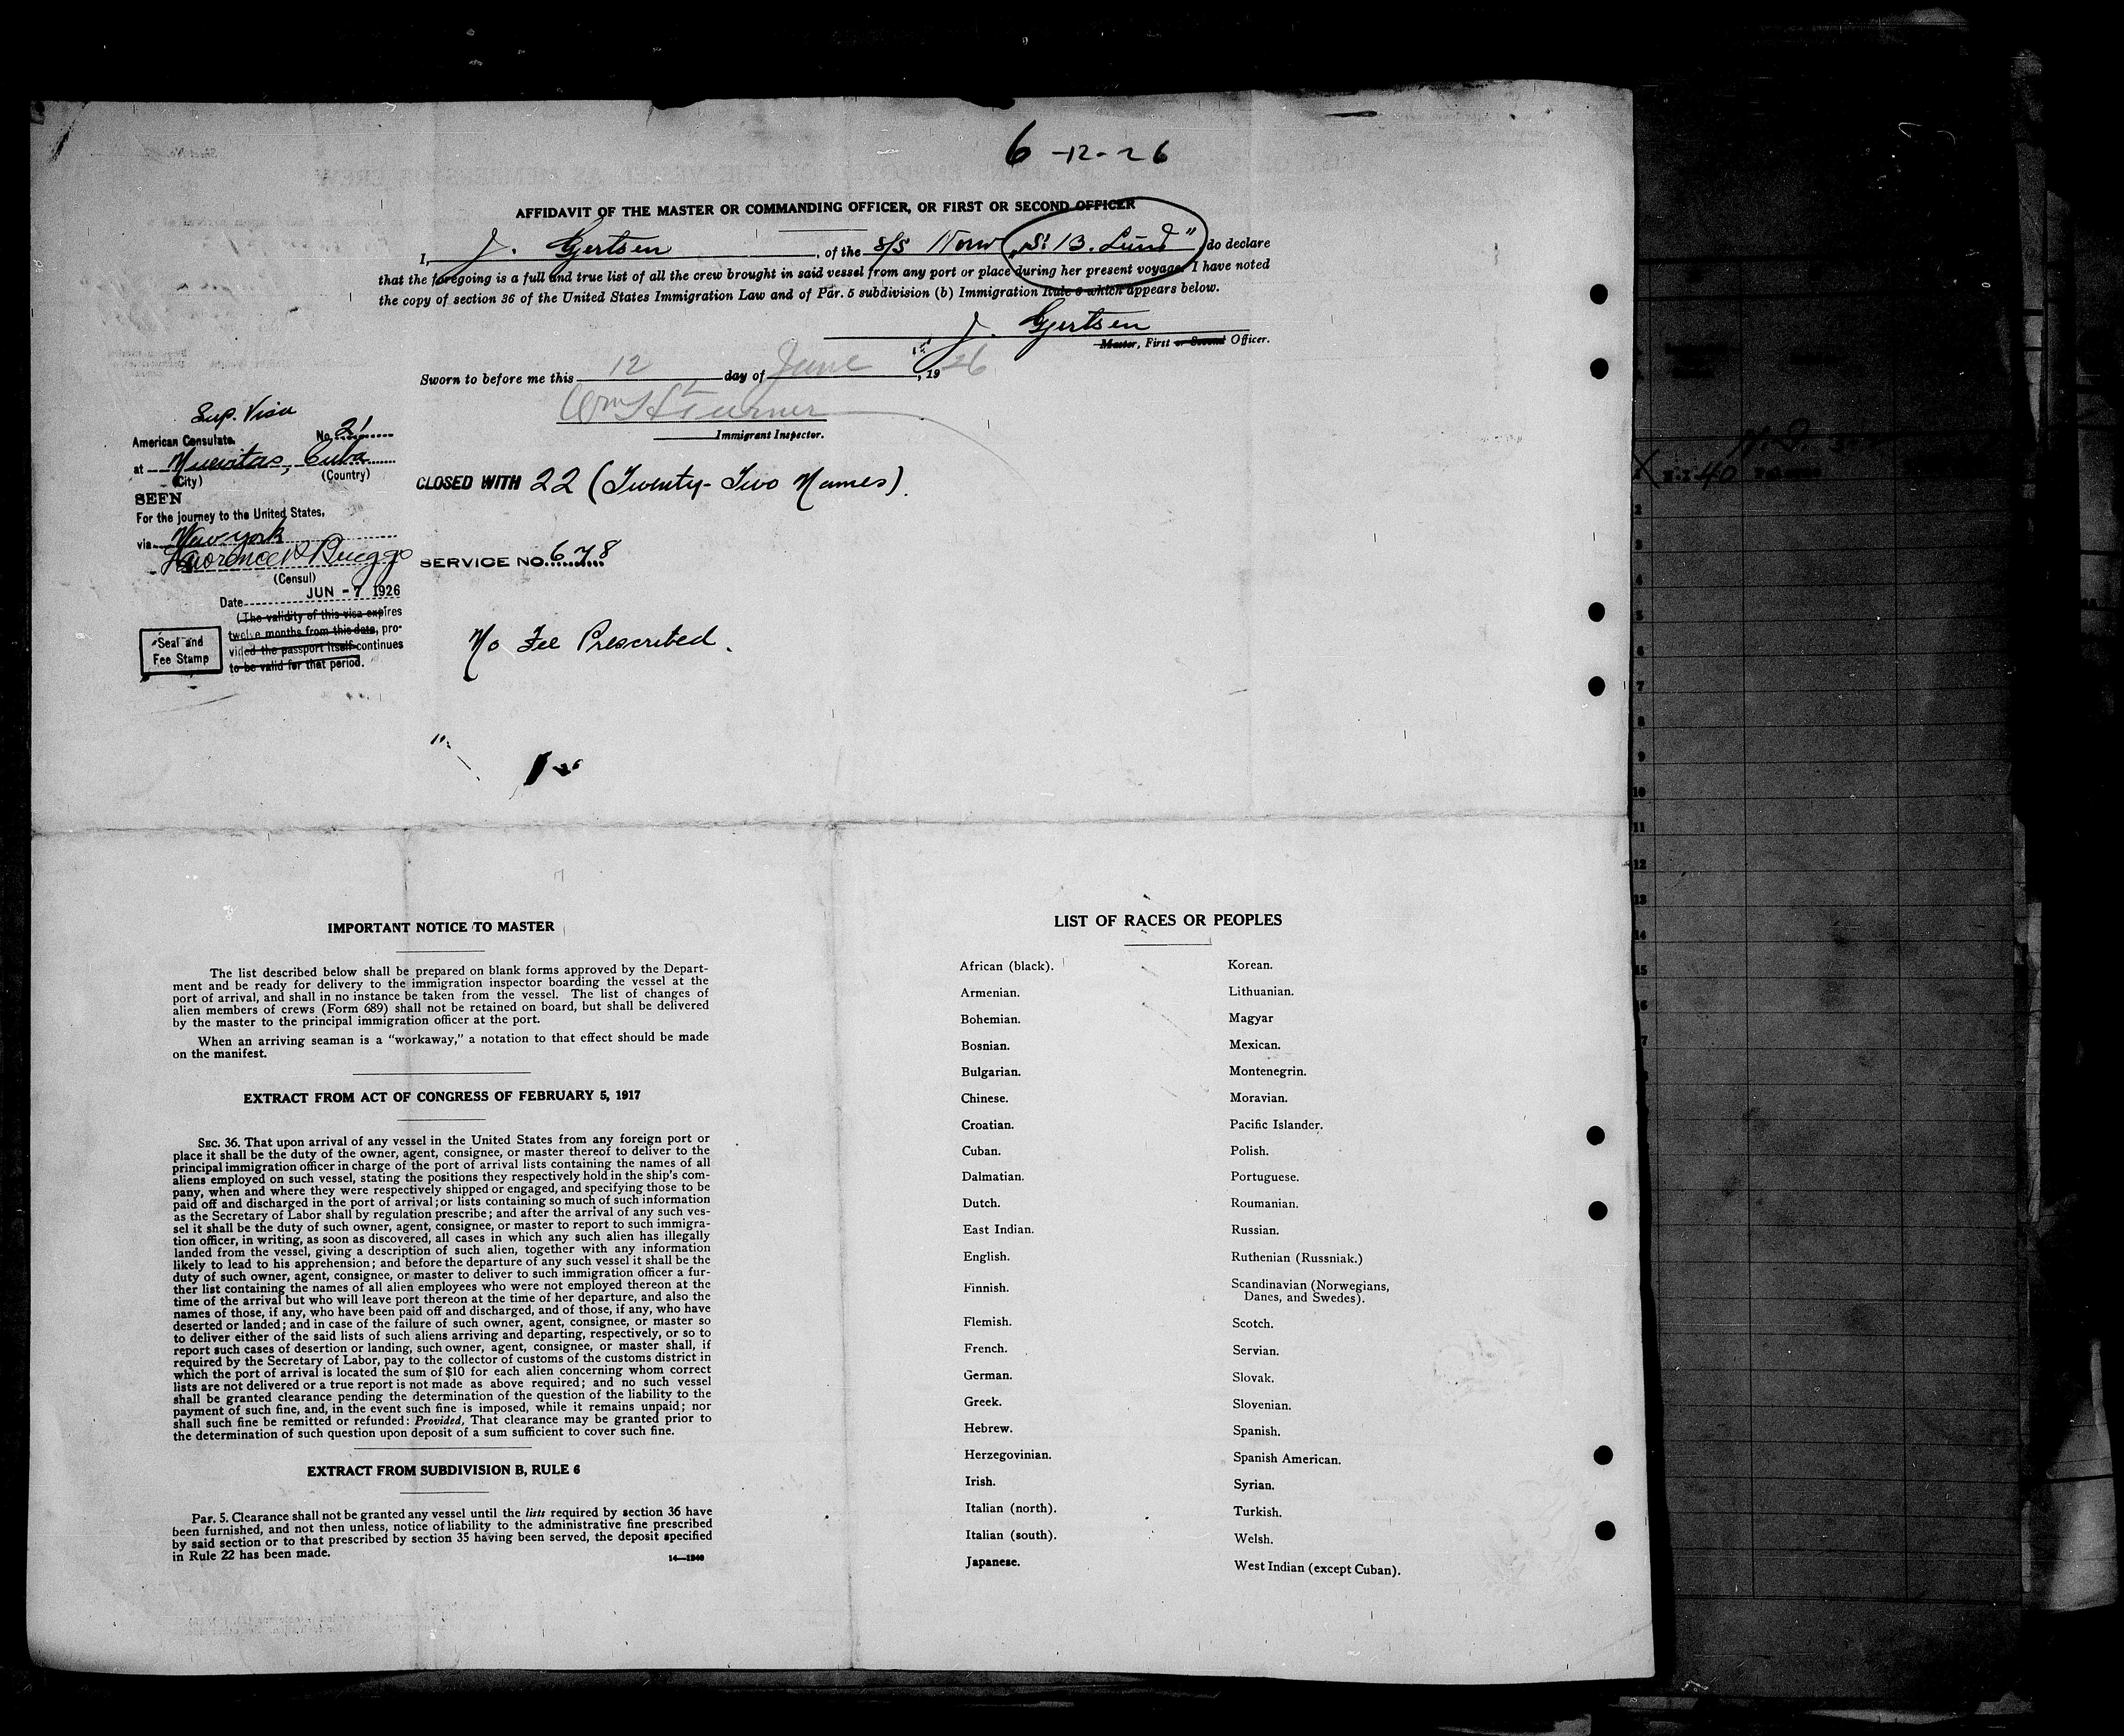 6-12-26
AFFIDAVIT OF THE MASTER OR COMMANDING OFFICER, OR FIRST OR SECOND OFFICER
I, J. Gjertsen, of the S/S Norw „S. B. Lund" do declare
that the foregoing is a full and true list of all the crew brought in said vessel from any port or place during her present voyage. I have noted
the copy of section 36 of the United States Immigration Law and of Par. 5 subdivision (b) Immigration Rule 6 which appears below.
J. Gjertsen
Master, First or Second Officer.
Sworn to before me this 12 day of June, 1926
Wm H Turner
Immigrant Inspector.
Sup. Visa
American Consulate. No. 21
at Nuevitas, Cuba
(City) (Country)
SEEN
For the journey to the United States,
via New York
Lawrence P Briggs
(Consul)
Date JUN -7 1926
(The validity of this visa expires
twelve months from this date, pro-
vided the passport itself continues
to be valid for that period.
Seal and
Fee Stamp
CLOSED WITH 22 (Twenty-Two Names).
SERVICE NO. 678
No Fee Prescribed.
IMPORTANT NOTICE TO MASTER
The list described below shall be prepared on blank forms approved by the Depart-
ment and be ready for delivery to the immigration inspector boarding the vessel at the
port of arrival, and shall in no instance be taken from the vessel. The list of changes of
alien members of crews (Form 689) shall not be retained on board, but shall be delivered
by the master to the principal immigration officer at the port.
When an arriving seaman is a "workaway," a notation to that effect should be made
on the manifest.
EXTRACT FROM ACT OF CONGRESS OF FEBRUARY 5, 1917
SEC. 36. That upon arrival of any vessel in the United States from any foreign port or
place it shall be the duty of the owner, agent, consignee, or master thereof to deliver to the
principal immigration officer in charge of the port of arrival lists containing the names of all
aliens employed on such vessel, stating the positions they respectively hold in the ship's com-
pany, when and where they were respectively shipped or engaged, and specifying those to be
paid off and discharged in the port of arrival; or lists containing so much of such information
as the Secretary of Labor shall by regulation prescribe; and after the arrival of any such ves-
sel it shall be the duty of such owner, agent, consignee, or master to report to such immigra-
tion officer, in writing, as soon as discovered, all cases in which any such alien has illegally
landed from the vessel, giving a description of such alien, together with any information
likely to lead to his apprehension; and before the departure of any such vessel it shall be the
duty of such owner, agent, consignee, or master to deliver to such immigration officer a fur-
ther list containing the names of all alien employees who were not employed thereon at the
time of the arrival but who will leave port thereon at the time of her departure, and also the
names of those, if any, who have been paid off and discharged, and of those, if any, who have
deserted or landed; and in case of the failure of such owner, agent, consignee, or master so
to deliver either of the said lists of such aliens arriving and departing, respectively, or so to
report such cases of desertion or landing, such owner, agent, consignee, or master shall, if
required by the Secretary of Labor, pay to the collector of customs of the customs district in
which the port of arrival is located the sum of $10 for each alien concerning whom correct
lists are not delivered or a true report is not made as above required; and no such vessel
shall be granted clearance pending the determination of the question of the liability to the
payment of such fine, and, in the event such fine is imposed, while it remains unpaid; nor
shall such fine be remitted or refunded: Provided, That clearance may be granted prior to
the determination of such question upon deposit of a sum sufficient to cover such fine.
EXTRACT FROM SUBDIVISION B, RULE 6
Par. 5. Clearance shall not be granted any vessel until the lists required by section 36 have
been furnished, and not then unless, notice of liability to the administrative fine prescribed
by said section or to that prescribed by section 35 having been served, the deposit specified
in Rule 22 has been made.
14—1940
LIST OF RACES OR PEOPLES
African (black).
Armenian.
Bohemian.
Bosnian.
Bulgarian.
Chinese.
Croatian.
Cuban.
Dalmatian.
Dutch.
East Indian.
English.
Finnish.
Flemish.
French.
German.
Greek.
Hebrew.
Herzegovinian.
Irish.
Italian (north).
Italian (south).
Japanese.
Korean.
Lithuanian.
Magyar
Mexican.
Montenegrin.
Moravian.
Pacific Islander.
Polish.
Portuguese.
Roumanian.
Russian.
Ruthenian (Russniak.)
Scandinavian (Norwegians,
Danes, and Swedes).
Scotch.
Servian.
Slovak.
Slovenian.
Spanish.
Spanish American.
Syrian.
Turkish.
Welsh.
West Indian (except Cuban).
40
2
3
4
5
6
7
8
9
10
11
12
13
14
15